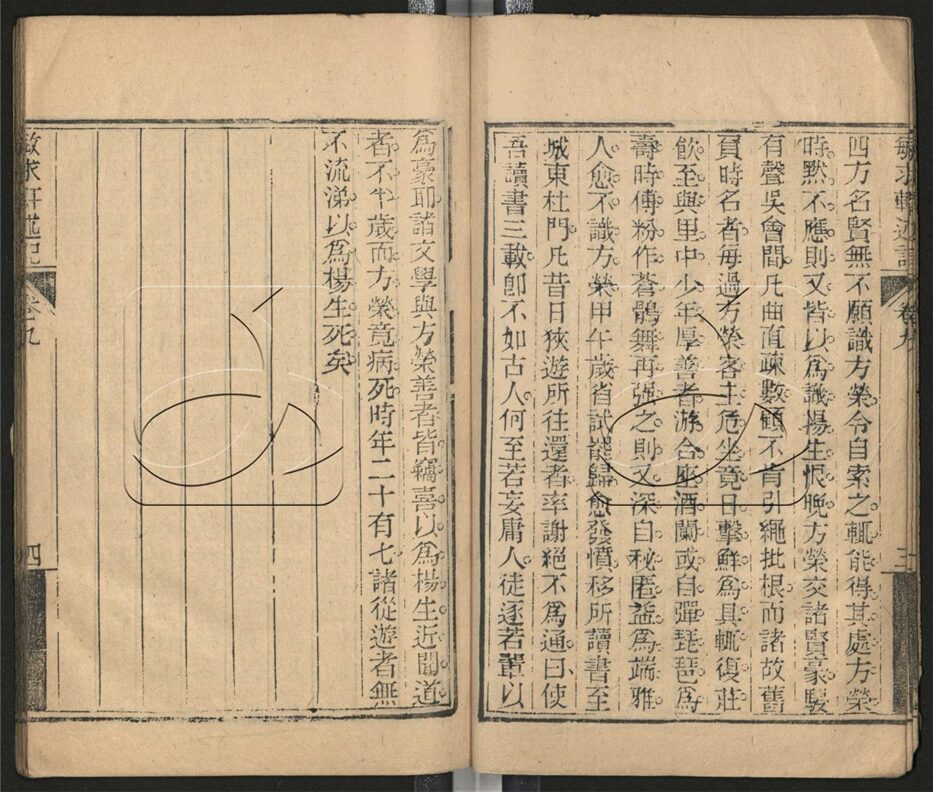 四方名賢無不願識方榮令自索之輒能得其處方榮
時黙不應則又皆以爲識楊生恨晚方榮交諸賢豪駸
有聲吳會間凡曲直疎數顧不肯引繩批根而諸故舊
負時名者毎過方榮客主危坐竟日擊鮮爲具輒復莊
飲至與里中少年厚善者游合座酒闌或自彈琵琶爲
壽時傅粉作蒼鶻舞再强之則又深自秘匿益爲端雅
人愈不識方榮甲午歲省試罷歸愈發憤移所讀書至
城東杜門凡昔日狹遊所往還者率謝絕不爲通曰使
吾讀書三載卽不如古人何至若妄庸人徒逐若輩以
爲豪耶諸文學與方榮善者皆竊喜以爲楊生近聞道
者不半歲而方榮竟病死時年二十有七諸從遊者無
不流涕以爲楊生死矣
敏求軒述記
卷九
四